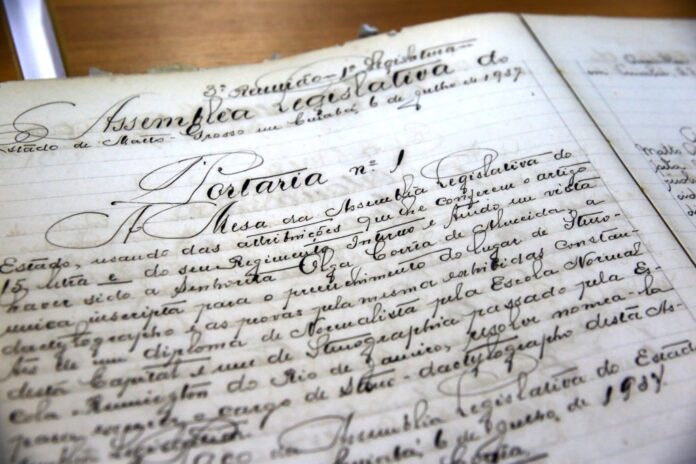 3ª Reunião - 1ª Legislatura
Assemblea Legislativa do
Estado de Matto-Grosso em Cuiabá, 6 de Julho de 1937
Portaria nº 1
A Mesa da Assemblia Legislativa do
Estado, usando das attribuições que lhe conferem o artigo
15, letra e do seu Regimento Interno e tendo em vista
haver sido a Senhorita Olga Corrêa de Almeida a
unica inscripta para o preenchimento do lugar de Steno-
dactylographo e as provas pela mesma exhibidas constan-
tes de um diploma de Normalista pela Escola Normal
desta Capital e um de Stenographia passado pela Es-
cola Remington do Rio de Janeiro, resolve nomea-la
para exercer o cargo de Steno-dactylographo desta As-
semblia Legislativa.
Paço da Assemblia Legislativa do Estado
Cuiabá, 6 de Julho de 1937.
Matto